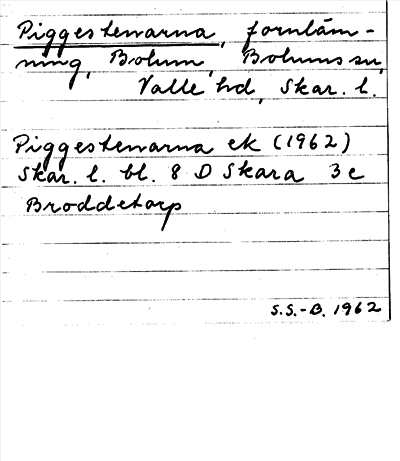 Piggestenarna, fornläm-
ning, Bolum, Bolums sn,
Valle hd, Skar. l.
Piggestenarna ek (1962)
Skar. l. bl. 8 D Skara 3 c
Broddetorp
S.S.-B. 1962